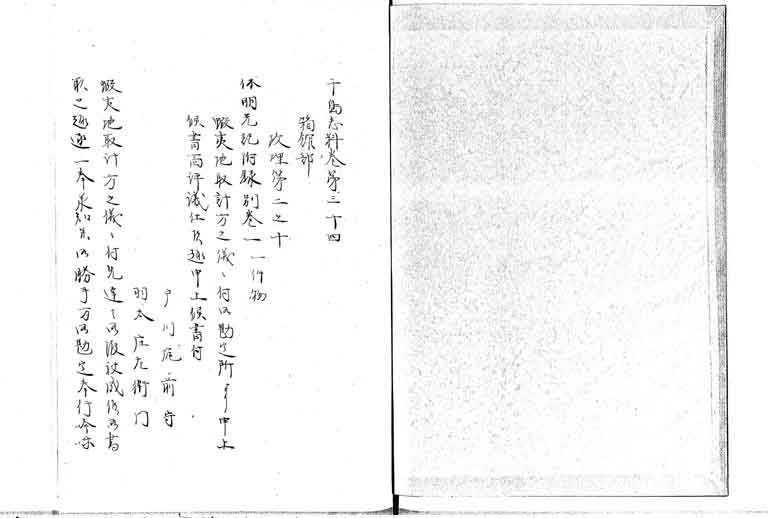 千島志料巻第三十四
箱館部
政理第二之十
休明光記附録別巻一 一件物
蝦夷地取計方之儀ニ付御勘定所より申上
候書面評議仕候趣申上候書付
戸川筑前守
羽太庄左衛門
蝦夷地取計方之儀ニ付先達而御渡被成候御書
取之趣逐一奉承知候御勝手方御勘定奉行吟味